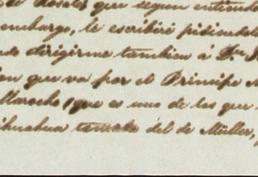 de Rosales que segun entiendo
embargo, le escribiré pidiendole
dirigirme tambien á Dn
que va por el Principe
que es uno de los que
ihuahua del de Müller,